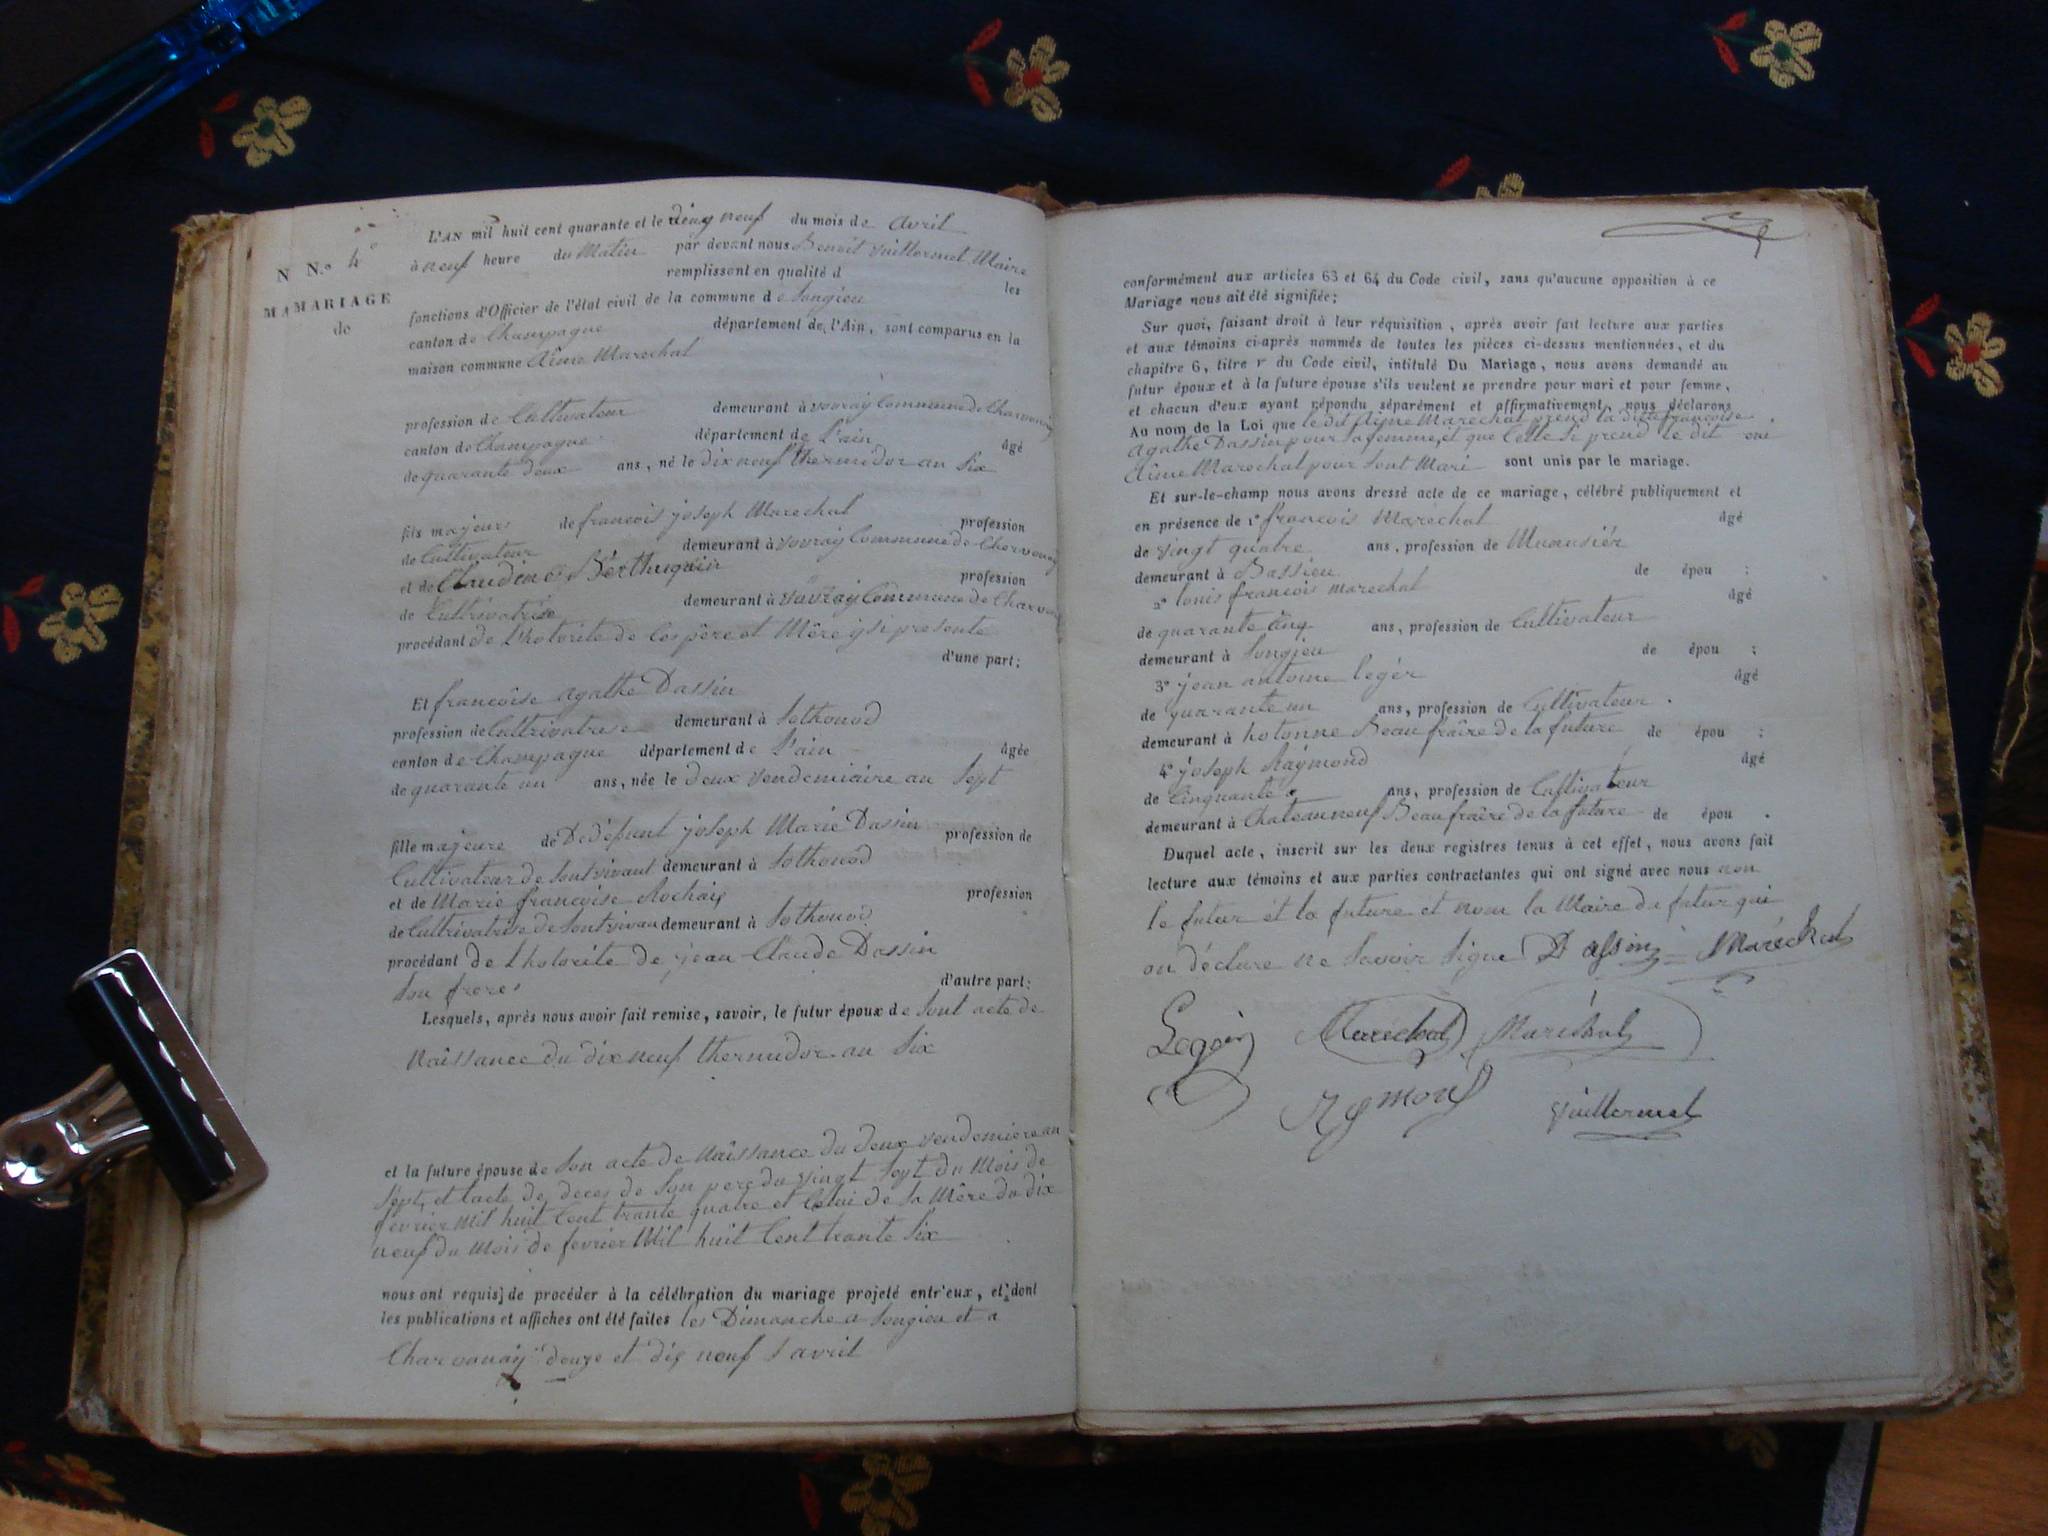 N N.º 4
MAMARIAGE
de
L'AN mil huit cent quarante et le dixneuf du mois de avril
à neuf heure du Matin par devant nous Benoit Vuillermet Maire
remplissent en qualité d les
fonctions d'Officier de l'état civil de la commune de Songieu
canton de Champagne département de l'Ain, sont comparus en la
maison commune Aîmé Marechal
profession de Cultivateur demeurant à vovray Commune de Charvonay
canton de Champagne département de L'ain âgé
de quarante deux ans, né le dix neuf thermidor an Six
fils majeurs de françois joseph Marechal profession
de Cultivateur demeurant à vovray Commune de Chervonay
et de Claudine Berthuquin profession
de Cultrivatrise demeurant à vavray Commune de Charvon
procédant de L'hotorite de Ces pêre et Mêre ysi presente
d'une part;
Et francoise agathe Dassin
profession de Cultrivatrise demeurant à Sothonod
canton de Champagne département de L'ain âgée
de quarante un ans, née le deux vendemiaire an Sept
fille majeure de Dedéfunt joseph Marie Dassin profession de
Cultivateur de Sont vivant demeurant à Sothonod
et de Marie francoise Rochaix profession
de Cultrivatrise de Sont vivan demeurant à Sothonod
procédant de L'hotorite de jean Claude Dassin
Son frere d'autre part:
Lesquels, après nous avoir fait remise, savoir, le futur époux de Sont acte de
Naissance du dix neuf thermidor an Six
et la future épouse de Son acte de Naîssance du Deux vendemiere an
Sept, et lacte de deces de Son pere du vingt Sept du Mois de
fevrier Mil huit Cent trante quatre et Celui de Sa Mêre du dix
neuf du Mois de fevrier Mil huit Cent trante Six
nous ont requis de procéder à la célébration du mariage projeté entr'eux, et dont
les publications et affiches ont été faites les Dimanche a Songieu et a
Charvonay douze et dix neuf d'avril
conformément aux articles 63 et 64 du Code civil, sans qu'aucune opposition à ce
Mariage nous ait été signifiée;
Sur quoi, faisant droit à leur réquisition, après avoir fait lecture aux parties
et aux témoins ci-après nommés de toutes les pièces ci-dessus mentionnées, et du
chapitre 6, titre V du Code civil, intitulé Du Mariage, nous avons demandé au
futur époux et à la future épouse s'ils veulent se prendre pour mari et pour femme,
et chacun d'eux ayant répondu séparément et affirmativement, nous déclarons
Au nom de la Loi que le dit Aîmé Marechal prend la ditte francoise
agathe Dassin pour Sa femme, et que Celle Si prend le dit
Aîmé Marechal pour Sont Mari sont unis par le mariage.
Et sur-le-champ nous avons dressé acte de ce mariage, célébré publiquement et
en présence de 1º francois Maréchal âgé
de vingt quatre ans, profession de
demeurant à Bassieu de épou ;
2º louis francois marechal âgé
de quarante Cinq ans, profession de Cultivateur
demeurant à Songieu de épou ;
3º jean antoine legér âgé
de quarante un ans, profession de Cultivateur.
demeurant à hotonne Beau fraîre de la future de épou ;
4º joseph Raymond âgé
de Cinquante ans, profession de Cultivateur
demeurant à Chateauneuf Beau fraîre de la future de épou .
Duquel acte, inscrit sur les deux registres tenus à cet effet, nous avons fait
lecture aux témoins et aux parties contractantes qui ont signé avec nous non
le futur et la future et non la Maire du futur qui
on déclare ne Savoir Signe D assin Maréchal
Legér Maréchal Maréchal
Rymond Vuillermet